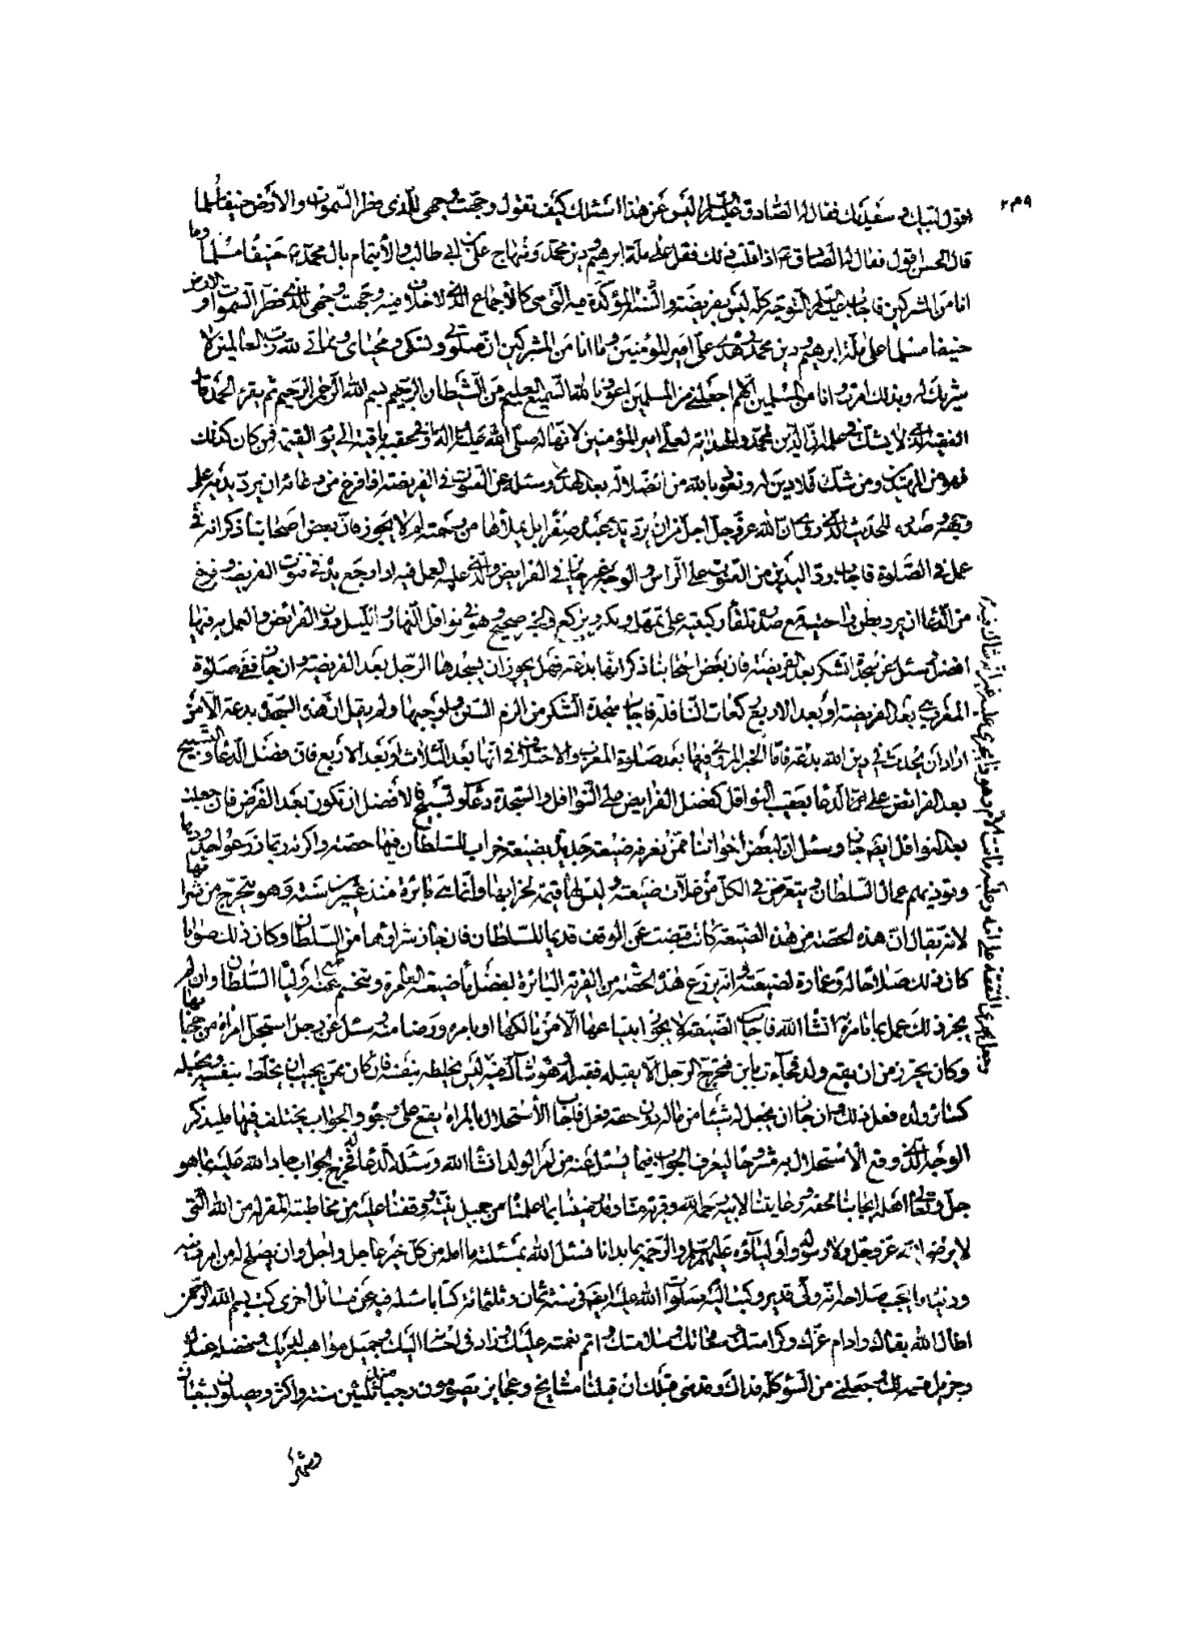 ٢٣٩
اقول لبيك و سعديك فقال له الصادق عليه السلم ليس عن هذا اسئلك كيف تقول وجهت وجهى للذى فطر السموات والارض حنيفا مسلما
قال الحسن اقول فقال له الصادق ع اذا قلت ذلك فقل على ملة ابرهيم و دين محمد و منهاج على بن ابى طالب والايتمام بال محمد حنيفا مسلما وما
انا من المشركين فاجاب عليه السلم التوجه كله ليس بفريضة والسنة المؤكدة فيه التى هى كالاجماع الذى لا خلاف فيه وجهت وجهى للذى فطر السموات والارض
حنيفا مسلما على ملة ابرهيم و دين محمد و هدى على امير المؤمنين وما انا من المشركين ان صلوتى ونسكى ومحياى ومماتى لله رب العالمين لا
شريك له وبذلك امرت وانا من المسلمين اللهم اجعلنى من المسلمين اعوذ بالله السميع العليم من الشيطان الرجيم بسم الله الرحمن الرحيم ثم يقرء الحمد قال
الفقيه الذى لا يشك فى علمه ان الدين لمحمد والهداية لعلى امير المؤمنين لانها له صلى الله عليه واله وفى عقبه باقية الى يوم القيمة فمن كان كذلك
فهو من المهتدين ومن شك فلا دين له ونعوذ بالله من الضلالة بعد الهدى وسئله عن القنوت فى الفريضة اذا فرغ من دعائه ان يرد يديه على
وجهه و صدره للحديث الذى روى ان الله عز وجل اجل من ان يرد يدى عبده صفرا بل يملأها من رحمته ام لا يجوز فان بعض اصحابنا ذكر انه
عمل فى الصلوة فاجاب رد اليدين من القنوت على الراس والوجه غير جايز فى الفرايض والذى عليه العمل فيه اذا رجع يده فى قنوت الفريضة و فرغ
من الدعاء ان يرد بطن راحتيه مع صدره تلقاء ركبتيه على تمهل ويكبر ويركع والخبر صحيح وهو فى نوافل النهار والليل دون الفرائض والعمل به فيها
افضل و سئل عن سجدة الشكر بعد الفريضة فان بعض اصحابنا ذكر انها بدعة فهل يجوز ان يسجدها الرجل بعد الفريضة وان جاز ففى صلوة
المغرب هى بعد الفريضة او بعد الاربع ركعات النافلة فاجاب سجدة الشكر من الزم السنن واوجبها ولم يقل ان هذه السجدة بدعة الا من
اراد ان يحدث فى دين الله بدعة فاما الخبر المروى فيها بعد صلوة المغرب والاختلاف فى انها بعد الثلاث او بعد الاربع فان فضل الدعاء والتسبيح
بعد الفرائض على الدعاء بعقيب النوافل كفضل الفرايض على النوافل والسجدة دعاء وتسبيح فالافضل ان تكون بعد الفرض فان جعلت
بعد النوافل ايضا جاز وسئل ان لبعض اخواننا ممن نعرفه ضيعة جديدة بضيعة خراب للسلطان فيها حصة واكرته ربما زرعوا حدودها
وتوذيهم عمال السلطان و يتعرض فى الكل من غلات ضيعته وليس لها قيمة لخرابها وانما هى بائرة منذ عشرين سنة وهو يتحرج من شرائها
لانه يقال ان هذه الحصة من هذه الضيعة كانت قبضت عن الوقف قديما للسلطان فان جاز شراؤها من السلطان وكان ذلك صوابا
كان ذلك صلاحا له وعمارة لضيعته وانه يزرع هذه الحصة من القرية البائرة لفضل ماء ضيعته العامرة وينحسم عنه طمع اولياء السلطان وان لم
يجز ذلك عمل بما تامره انشاء الله فاجاب الضيعة لا يجوز ابتياعها الا من مالكها او بامره ورضا منه و سئل عن رجل استحل امرأة من حجابها
وكان يحترز من ان يقع ولد فجاءت بابن فتحرج الرجل الا يقبله فقبله وهو شاك فيه ليس يخلطه بنفسه فان كان ممن يجب ان يخلطه بنفسه ويجعله
كسائر ولده فعل ذلك وان جاز ان يجعل له شيئا من ماله دون حقه فعل فاجاب الاستحلال بالمراة يقع على وجوه والجواب يختلف فيها فليذكر
الوجه الذى وقع الاستحلال به مشروحا ليعرف الجواب فيما يسئل عنه من امر الولد انشاء الله وسئله الدعاء له فخرج الجواب جاد الله عليه بما هو
جل وتعالى اهله ايجابنا لحقه و رعايتنا لابيه رحمه الله وقربه منا وقد رضينا بما علمنا من جميل نيته ووقفنا عليه من مخاطبته المقربة من الله التى
لا يرضى الله عز وجل ولا رسوله واولياؤه عليهم السلم والرحمة بما بدانا نسئل الله بمسئلته ما امله من كل خير عاجل واجل وان يصلح له من امر دينه
ودنياه ما يحب صلاحه انه ولى قدير وكتب اليه صلوات الله عليه ايضا فى سنة ثمان وثلثمائة كتابا سئله فيه عن مسائل اخرى كتب بسم الله الرحمن
اطال الله بقاك وادام عزك وكرامتك وسعادتك وسلامتك واتم نعمته عليك وزاد فى احسانه اليك وجميل مواهبه لديك وفضله عندك
وجزيل قسمه لك وجعلنى من السوء كله فداك وقدمنى قبلك ان قبلنا مشايخ وعجايز يصومون رجبا منذ ثلثين سنة واكثر ويصلون بشعبان
وشهر